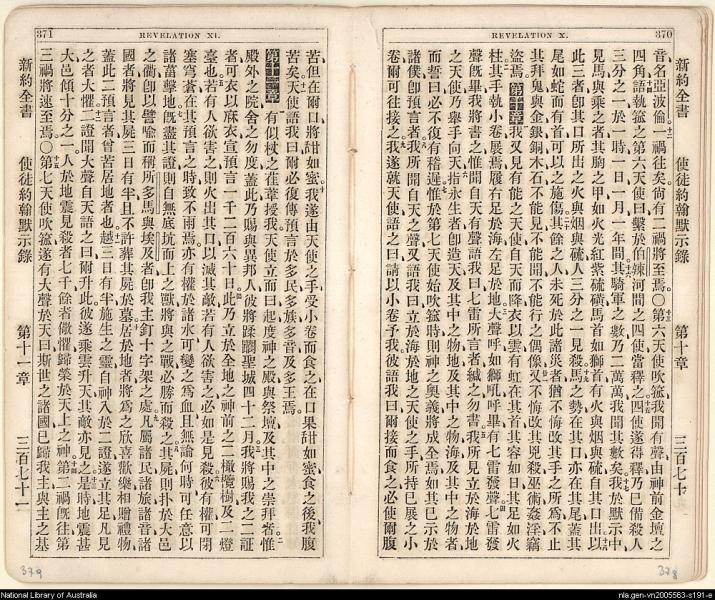 370
REVELATION X.
新約全書　使徒約翰默示錄　第十章　三百七十
音名亞波倫一禍往矣尚有二禍將至焉〇第六天使吹篪我聞有聲由神前金壇之
四角語執篪之第六天使曰繫於伯辣河間之四使當釋之四使遂得釋乃已備殺人
三分之一於一時一日一月一年間其騎軍之數乃二萬萬我聞其數矣我於默示中
見馬與乘之者其騎之甲如火光紅紫硫磺馬首如獅首有火與烟與硫自其口出以
此三者卽其口所出之火與烟與硫人三分之一見殺馬之勢在其口亦在其尾蓋其
尾如蛇而有首可以之施傷其餘之人未死於此諸災者猶不悔改其手之所爲不止
其拜鬼與金銀銅木石不能見不能聞不能行之偶像又不悔改其兇殺巫術姦淫竊
盜焉第十章我又見有能之天使自天而降衣以雲有虹在其首其容如日其足如火
柱其手執小卷展焉履右足於海左足於地大聲呼如獅吼呼畢有七雷發聲七雷發
聲旣畢我將書之惟聞自天有聲語我曰七雷所言者緘之勿書我所見立於海於地
之天使乃舉手向天指永生者卽造天及其中之物地及其中之物海及其中之物者
而誓曰必不復有稽遲惟於第七天使始吹篪時則神之奧義將成全焉如其已示於
諸僕卽預言者我所聞自天之聲又語我曰立於海於地之天使之手所持已展之小
卷爾可往接之我遂就天使語之曰請以小卷予我彼語我曰爾接而食之必使爾腹
371
REVELATION XI.
苦但在爾口將甜如蜜我遂由天使之手受小卷而食之在口果甜如蜜食之後我腹
苦矣天使語我曰爾必復傳預言於多民多族多音及多王焉
第十一章　有似杖之葦授我天使立而曰起度神之殿與祭壇及其中之崇拜者惟
殿外之院舍之勿度蓋此乃賜與異邦人彼將蹂躪聖城四十二月我將賜我之二証
者可衣以麻衣宣預言一千二百六十日此乃立於全地之神前之二橄欖樹及二燈
臺也若有人欲害之則火出其口以滅其敵若有人欲害之必如是見殺彼有權可閉
塞穹蒼在其預言之時致不雨焉亦有權於諸水可變之爲血且無論何時可任意以
諸菑擊地旣盡其證則自無底坑而上之獸將與之戰必勝而殺之其屍則扑於大邑
之衢卽以譬喻而稱所多馬與埃及者卽我主釘十字架之處凡屬諸民諸族諸音諸
國者將見其屍三日有半且不許葬其屍於墓居於地者將爲之欣喜歡樂相贈禮物
蓋此二預言者曾苦居地者也越三日有半施生之靈自神入於二證遂立其足凡見
之者大懼二證聞大聲自天語之曰爾升此彼遂乘雲升天其敵亦見之是時地震甚
大邑傾十分之一人於地震見殺者七千餘者儆懼歸榮於天上之神第二禍旣往第
三禍將速至焉〇第七天使吹篪遂有大聲於天曰斯世之諸國已歸我主與主之基
新約全書　使徒約翰默示錄　第十一章　三百七十一
379
378
National Library of Australia
nla.gen-vn2005563-s191-e